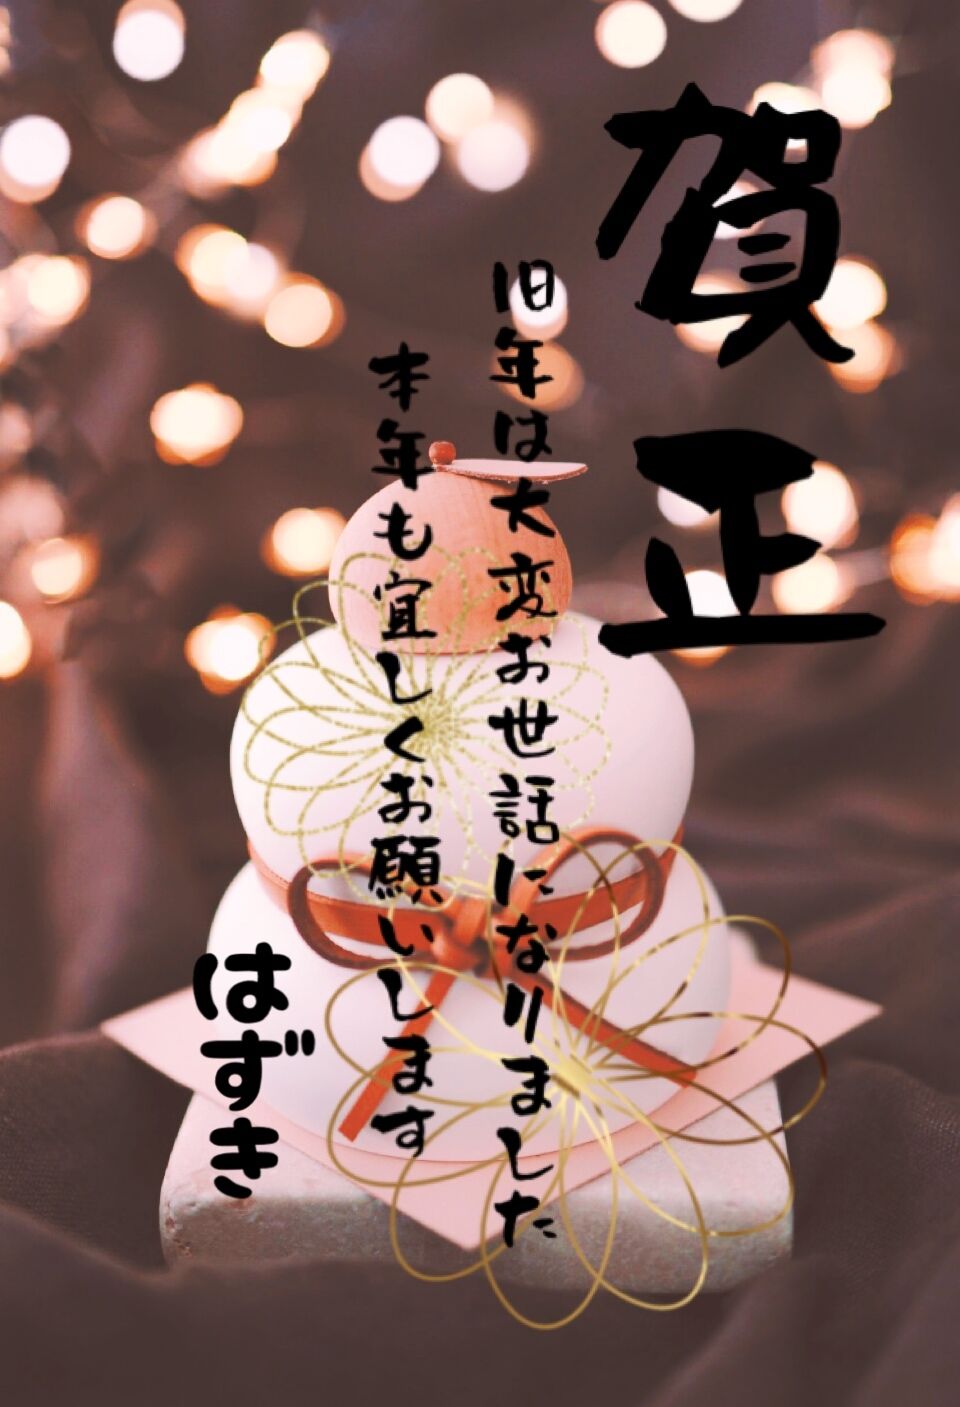 賀正
旧年は大変お世話になりました
本年も宜しくお願いします
はずき